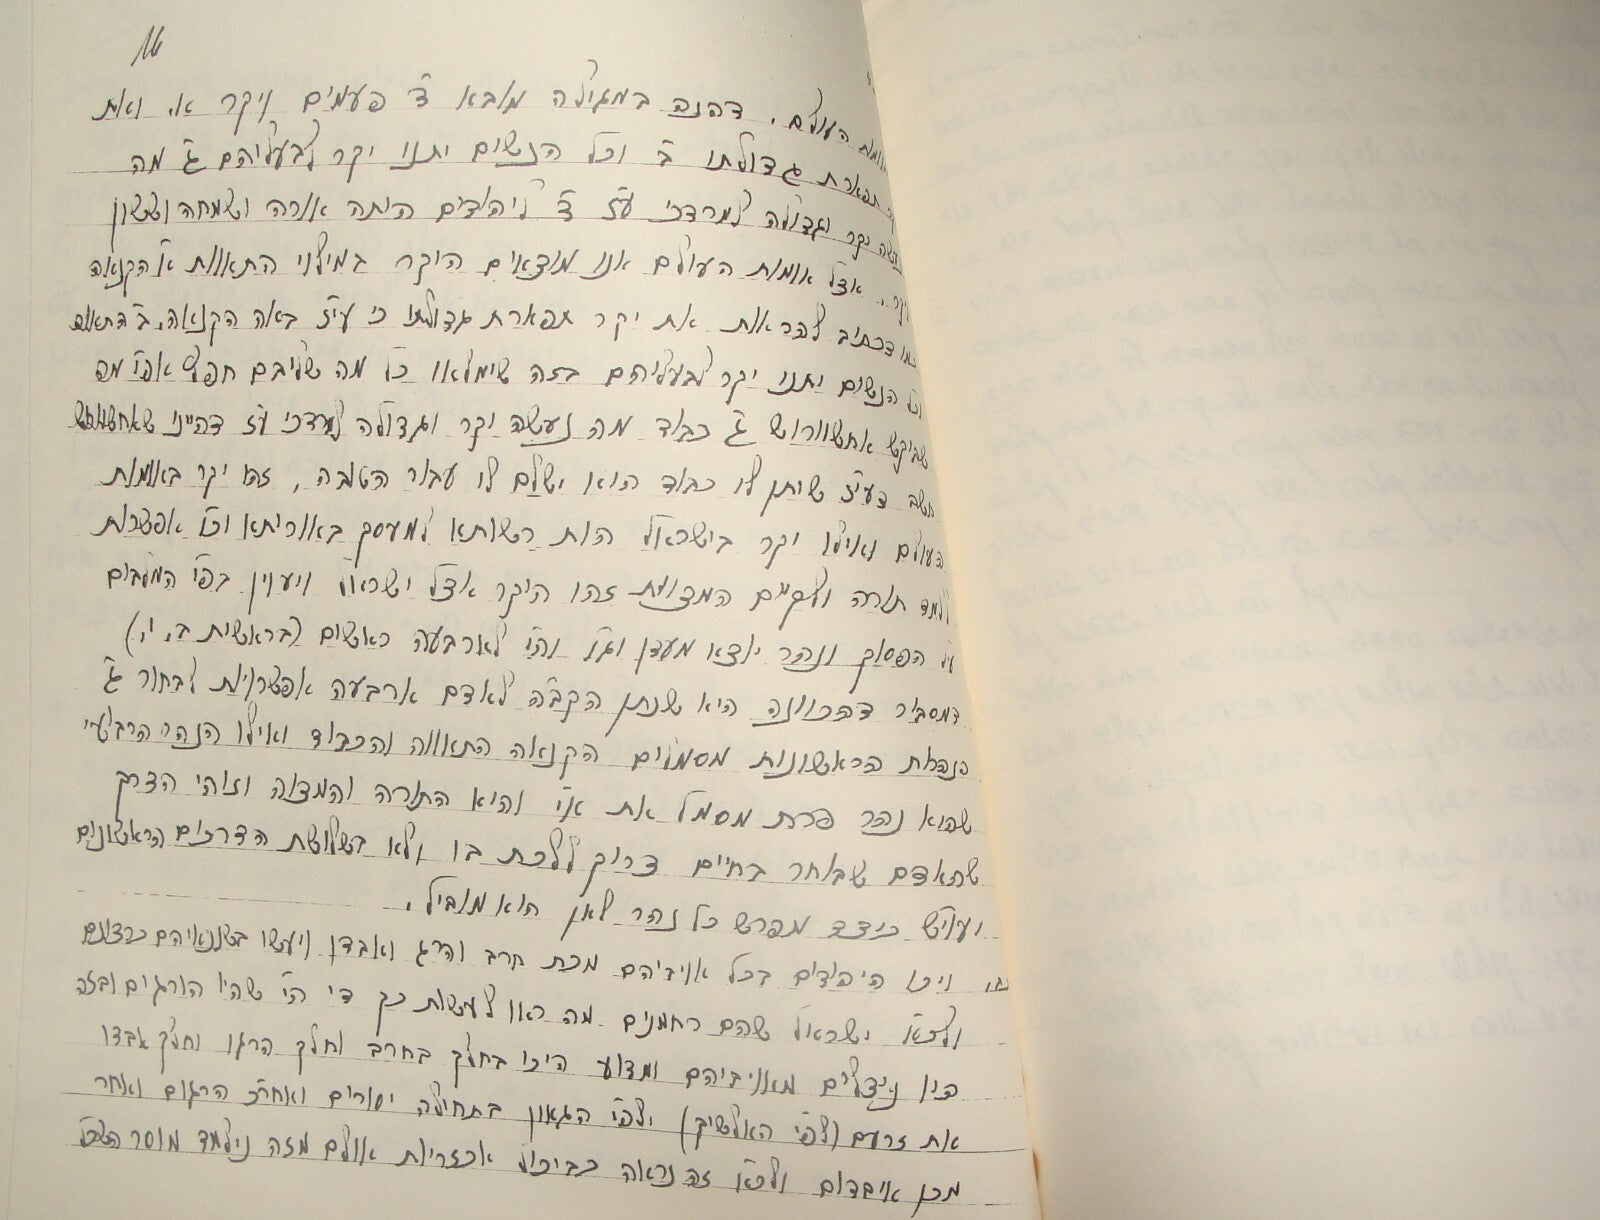 16
אומות העולם. דהנה במגילה מובא ד' פעמים ויקר א. ואת
תפארת גדולתו ב' וכל הנשים יתנו יקר לבעליהם ג' מה
נעשה יקר וגדולה למרדכי ע"ז ד' ליהודים היתה אורה ושמחה וששון
ויקר. אצל אומות העולם אנו מוצאים היקר במילוי התאוות א' הקנאה
כמו דכתיב להראות את יקר תפארת גדולתו כי עי"ז באה הקנאה. ב' התאוה
וכל הנשים יתנו יקר לבעליהם בזה שימלאו כל מה שליבם חפץ אפי' מה
שביקש אחשוורוש ג' כבוד מה נעשה יקר וגדולה למרדכי ע"ז דהיינו שאחשורוש
חשב דעי"ז שיתן לו כבוד הוא ישלם לו עבור הטובה, זהו יקר באומות
העולם ואילו יקר בישראל הות רשותא למעסק באוריתא וכו' אפשרות
ללמד תורה ולקיים המצוות זהו היקר אצל ישראל ויעוין בפי' המלבים
על הפסוק ונהר יוצא מעדן וגו' והי' לארבעה ראשים (בראשית ב, י,)
דמסביר דהכוונה היא שנתן הקב"ה לאדם ארבעה אפשרויות לבחור ג'
הנהרות הראשונות מסמלים הקנאה התאווה והכבוד ואילו הנהר הרביעי
שהוא נהר פרת מסמל את א"י והיא התורה והמצוה וזוהי הדרך
שהאדם שבוחר בחיים צריך ללכת בו ולא בשלושת הדרכים הראשונים
ועוי"ש כיצד מפרש כל נהר לאן הוא מוביל.
ויכו היהודים בכל אויביהם מכת חרב והרג ואבדן ויעשו בשונאיהם כרצונם
ולכאו' ישראל שהם רחמנים מה ראו לעשות כך די הי' שהיו הורגים ובזה
היו ניצלים מאויביהם ומדוע היכו בחלק בחרב וחלק הרגו וחלק אבדו
את זרעם (לפי האלשיך) ולפי' הגאון בתחילה יסורים ואח"כ הרגום ואחר
מכן איבדום ולכאו' זה נראה כביכול אכזריות אולם מזה נילמד מוסר השכל